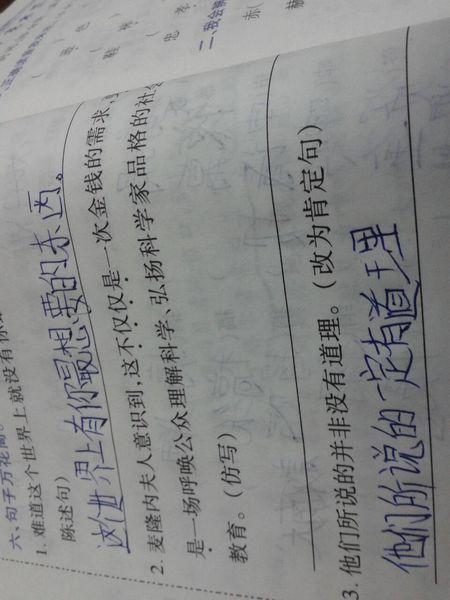 六、句子万花筒。
1. 难道这个世界上就没有你
陈述句)
这世界上有你最想要的东西。
2. 麦隆内夫人意识到,这不仅仅是一次金钱的需求,
是一场呼唤公众理解科学、弘扬科学家品格的社
教育。(仿写)
3. 他们所说的并非没有道理。(改为肯定句)
他们所说的一定有道理
二、我会